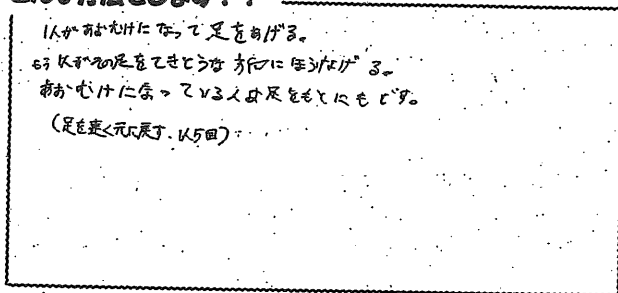 どんな方法でします？？
1人があおむけになって足をあげる。
もう1人がその足をてきとうな方向にほうりなげる。
あおむけになっている人は足をもとにもどす。
(足を速く元に戻す. 1人5回)